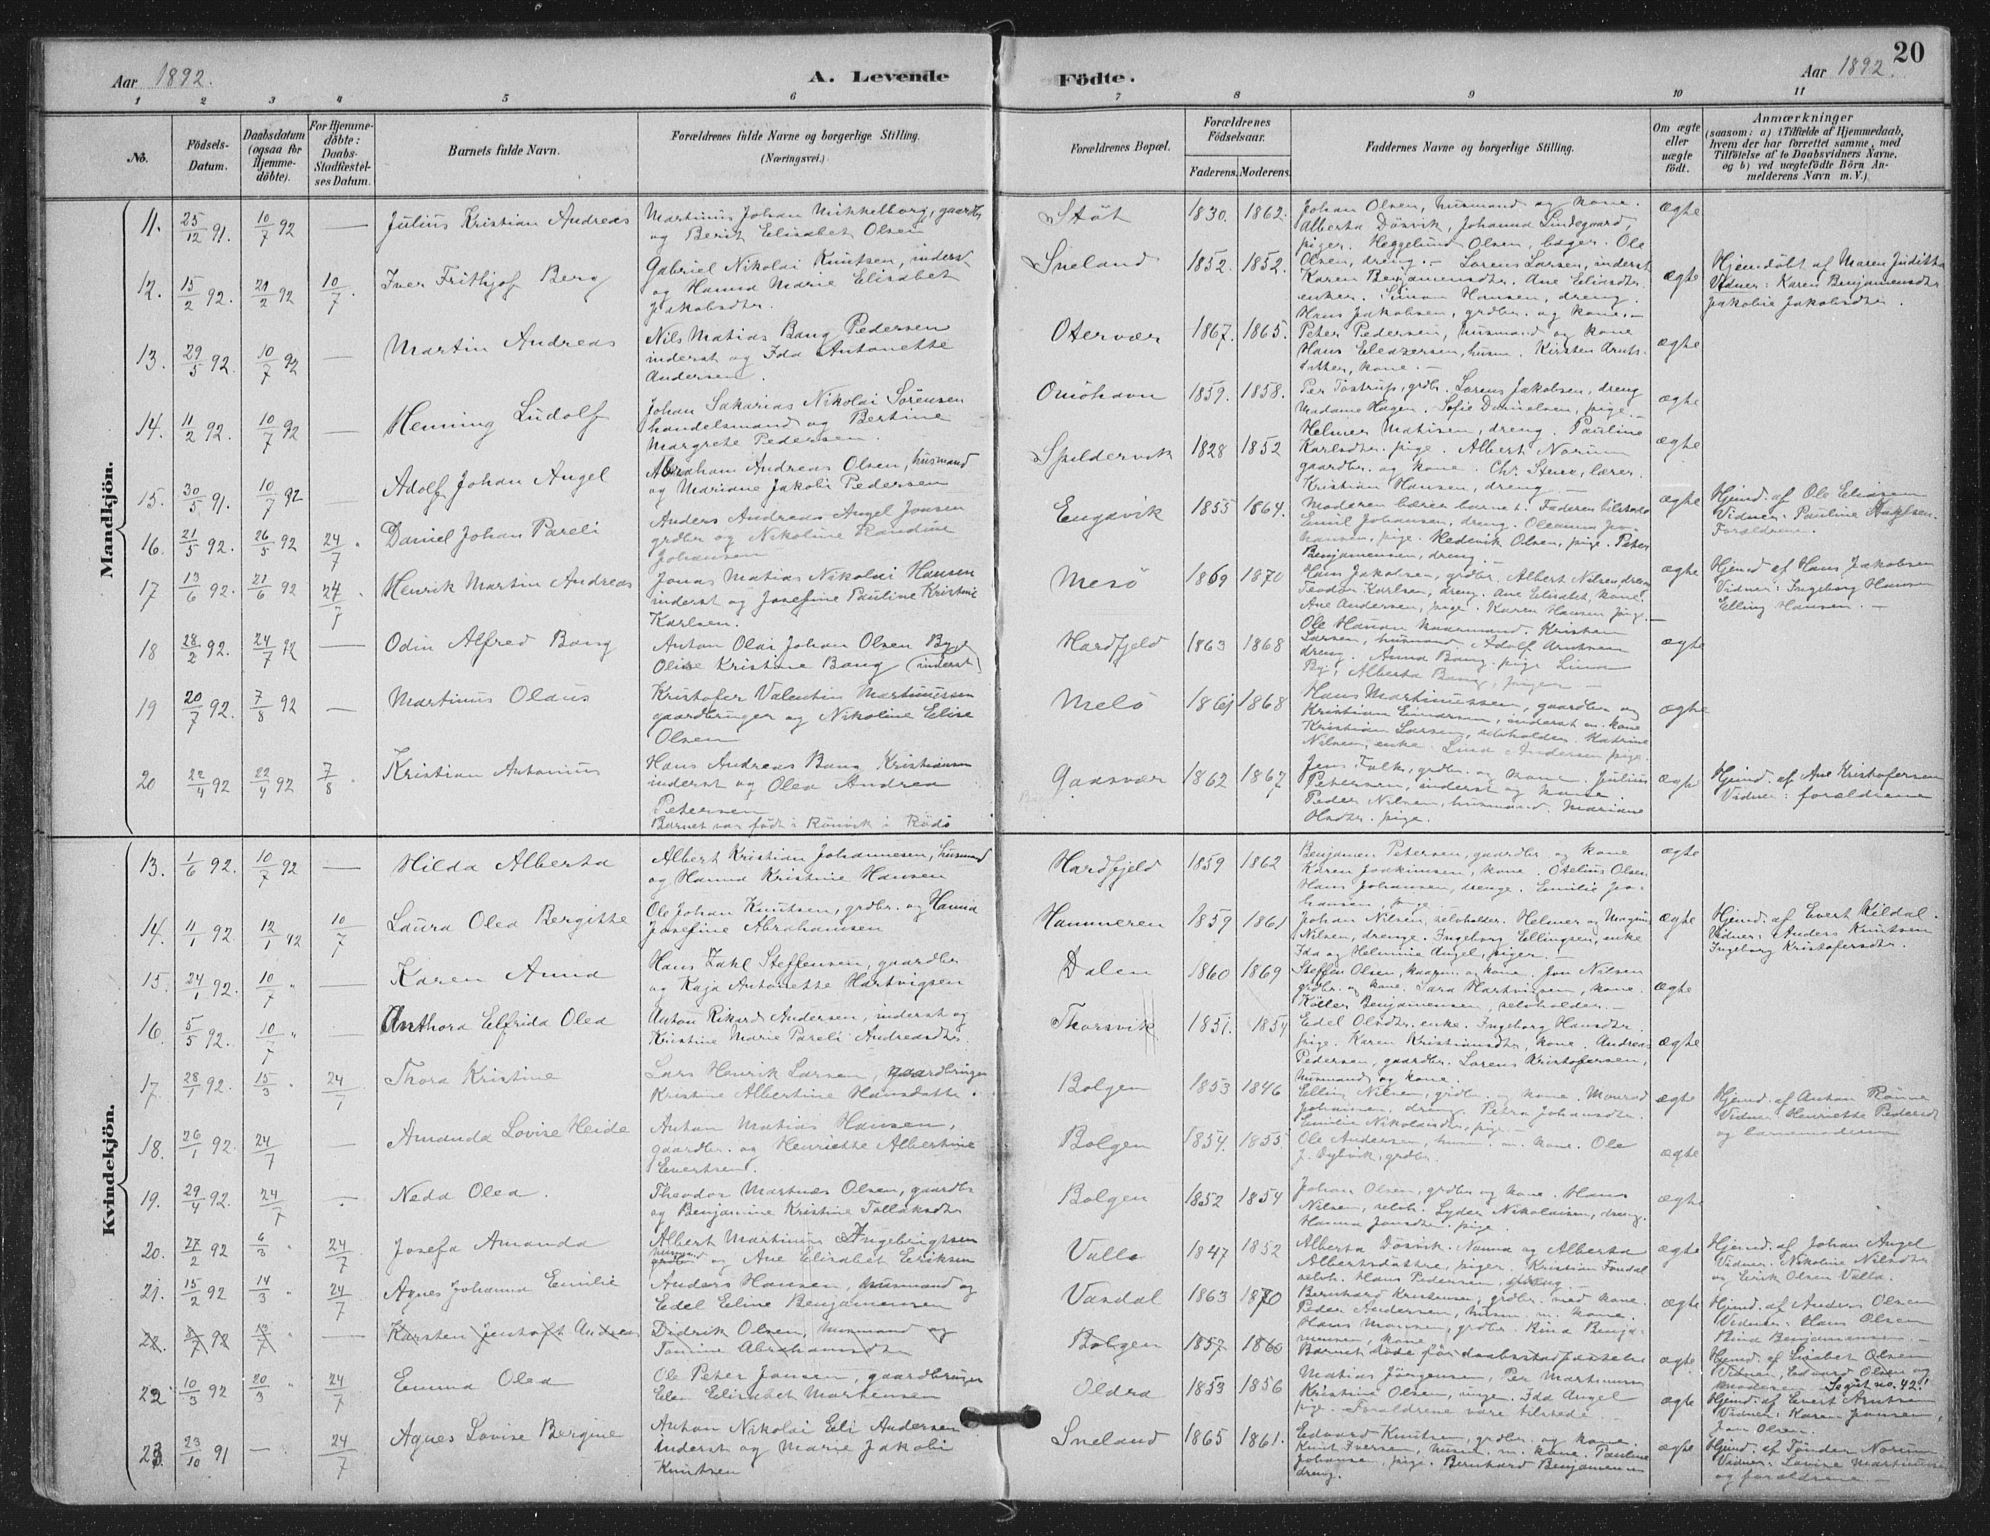 Aar 1892. A. Levende
1 2 3 4 5 6
No. Födsels-Datum. Daabsdatum (ogsaa for Hjemme-döbte). For Hjemme-döbte: Daabs-Stadfæstel-ses Datum. Barnets fulde Navn. Forældrenes fulde Navne og borgerlige Stilling. (Næringsvei.)
Mandkjön.
11. 25/12 91. 10/7 92 — Julius Kristian Andreas Martinus Johan Mikkelborg, gaardbr
og Berit Elisabet Olsen
12. 15/2 92. 21/2 92 10/7. Iver Frithjof Berg Gabriel Nikolai Knutsen, inderst
og Hanna Marie Elisabet
Jakobsdtr.
13. 29/5 92. 10/7 92 — Martin Andreas Nils Matias Bang Pedersen
inderst og Ida Antonette
Andersen.
14. 11/2 92. 10/7 92 — Henning Ludolf Johan Sakarias Nikolai Sörensen
handelsmand og Bertine
Margrete Pedersen.
15. 30/5 91. 10/7 92 — Adolf Johan Angel Abraham Andreas Olsen, husmand
og Mariane Jakobi Pedersen
16. 21/5 92. 26/5 92 24/7. Daniel Johan Pareli Anders Andreas Angel Jonsen
grdbr og Nikoline Handine
Johansen
17 13/6 92. 21/6 92 24/7. Henrik Martin Andreas Jonas Matias Nikolai Hansen
inderst og Josefine Pauline Kristine
Karlsen.
18 28/2 92. 24/7 92 — Odin Alfred Bang Anton Olai Johan Olsen By og
Olise Kristine Bang (inderst)
19 20/7 92. 7/8 92 — Martinus Olaus Kristofer Valentin Martinussen
gaardbruger og Nikoline Elise
Olsen
20 22/4 92 22/4 92 7/8 Kristian Antonius Hans Andreas Bang Kristiansen
inderst og Olea Andrea
Petersen
Barnet var födt i Rönvik i Rödö
Kvindekjön.
13. 1/6 92. 10/7 92 — Hilda Alberta Albert Kristian Johannesen, husmand
og Hanna Kristine Hansen
14. 11/1 92. 12/1 92 10/7 Laura Olea Bergitte Ole Johan Knutsen, grdbr. og Hanna
Josefine Abrahamsen
15. 24/1 92. 10/7 " — Karen Anna Hans Zahl Steffensen, gaardbr
og Kaja Antonette Hartvigsen
16. 5/5 92. 10/7 " — Anthora Elfrida Olea Anton Rikard Andersen, inderst og
Kristine Marie Pareli Andreasdtr.
17. 28/1 92. 15/3 " 24/7 Thora Kristine Lars Henrik Larsen, gaardbruger
Kristine Albertine Hansdatter.
18. 26/1 92. 24/7 — Amanda Lovise Heide Anton Matias Hansen,
gaardbr. og Henriette Albertine
Evertsen.
19. 29/4 92. 24/7 — Neda Olea. Theodor Martnæs Olsen, gaardbr
og Benjamine Kristine Tollaksdtr
20. 27/2 92 6/3 " 24/7 Josefa Amanda Albert Martinus Ingebrigtsen
husmand og Ane Elisabet Eriksen
21. 15/2 92 14/3 " 24/7 Agnes Johanna Emilie Anders Hansen, husmand og
Edel Eline Benjamensen
Karsten Jentoft Andreas Didrik Olsen, husmand og
Tomine Abrahamsdtr
22 10/3 92 20/3 " 24/7 Emma Olea Ole Peter Jansen, gaardbruger
Elen Elisabet Mortensen
23. 23/10 91 — " 24/7 Agnes Lovise Bergine Anton Nikolai Eli Andersen
Inderst og Marie Jakobi
Knutsen
Födte. Aar 1892. 20
7 8 9 10 11
Forældrenes Bopæl. Forældrenes Födselsaar. Faderens. Moderens. Faddernes Navne og borgerlige Stilling. Om ægte eller uægte födt. Anmærkninger (saasom: a) i Tilfælde af Hjemmedaab, hvem der har forrettet samme, med Tilföielse af to Daabsvidners Navne, og b) ved uægtefödte Börn An-melderens Navn m. V.)
Stöt 1830. 1862. Johan Olsen, husmand og kone. ægte
Alberta Dösvik, Johanna Lindegaard,
piger. Heggelund Olsen, læger. Ole
Sneland 1852. 1852. Olsen, dreng. — Lorens Larsen, inderst ægte Hjemdöbt af Maren Juditha
Karen Benjamensdtr. Ane Eliasdtr. Vidner: Karen Benjamensdtr
enker. Simon Hansen, dreng. Jakobie Jakobsdtr.
Hans Jakobsen, grdbr. og kone. —
Otervær 1867. 1865. Peter Pedersen, husmand og kone ægte
Hans Eleazersen, husm. Kirsten Arnts-
datter, kone. —
Onöhavn 1859. 1858. Per Tostrup, grdbr. Lorens Jakobsen, dreng ægte
Madame Hagen. Sofie Danielsen, pige. —
Spildervik 1828 1852 Helmer Matisen, dreng. Pauline ægte
Karlsdtr. pige. Albert Norum
gaardbr. og kone. Chr. Steen, lærer.
Kristian Hansen, dreng —
Engavik 1855 1864. Moderen bærer barnet. Faderen tilstede ægte Hjemd. af Ole Eliasen
Emil Johansen, dreng. Oleanna Jo- Vidner: Pauline
hansen, pige. Hedevik Olsen, pige. Peter Forældrene.
Benjamensen, dreng
Mesö 1869 1870 Hans Jakobsen, grdbr. Albert Nilsen, dreng ægte Hjemd af Hans Jakobsen
Teodor Karlsen, dreng. Ane Elisabet, kone, Vidner: Ingeborg Hansen
Ane Andersen, pige. Karen Hansen pige. — Elling Hansen. —
Hardfjeld 1863 1868 Ole Hansen kaarmand. Kristian ægte
Larsen, husmand. Adolf Arntsen
dreng. Anna Bang, pige Linda
By, Alberta Bang, piger —
Melö 1861 1868 Hans Martinussen, gaardbr og ægte
Kristian Einarsen, inderst m. kone
Kristian Larsen, selvholder. Katrine
Nilsen, enke. Lina Andersen pige.
Gaasvær 1862 1867 Jens Falk, grdbr. og kone. Julius ægte Hjemd. af Ane Kristofersen
Petersen, inderst og kone Vidner: forældrene
Peder Nilsen, husmand. Mariane
Olsdtr. pige.
Hardfjeld 1859 1862 Benjamen Petersen, gaardbr og kone ægte
Karen Joakimsen, kone. Otelius Olsen
Hans Johansen, drenge. Emilie Jo-
hansen, pige
Hammeren 1859 1861 Johan Nilsen, selvholder. Helmer og Magnus ægte Hjemd. af Evert Kildal.
Nilsen, drenge. Ingeborg Ellingsen, enke Vidner: Anders Knutsen
Ida og Helmine Angel, piger. — Ingeborg Kristofersdtr.
Dalen 1860 1869 Steffen Olsen, kaarm. og kone. Jon Nilsen ægte
grdbr. og kone. Sara Hartvigsen, kone.
Köller Benjamensen, selvholder. —
Thorsvik 1851. 1854 Edel Olsdtr. enke. Ingeborg Hansdtr. ægte
pige. Karen Kristiansdtr, kone. Andreas
Pedersen, gaardbr. Lorens Kristofersen,
husmand og kone.
Bolgen 1853 1846 Elling Nilsen, grdbr og kone. Monrad ægte Hjemd. af Anton Rönne
Johansen, dreng. Petra Johansdtr. Vidner Henriette Pedersd
Emilie Nikolaisdtr, pige. — og barnemoderen
Bolgen 1854. 1855. Ole Andersen, husm. m. kone. Ole ægte
J. Dybvik, grdbr.
Bolgen 1852 1854 Johan Olsen, grdbr og kone. Hans ægte
Nilsen, selvh. Lyder Nikolaisen, dreng.
Hanna Jonsdtr. pige.
Valla 1847 1852 Alberta Dösvik. Nanna og Alberta ægte Hjemd. af Johan Angel
Albertsdatter, piger. Kristian Fondal Vidner. Nikoline Nilsdtr
selvh. Hans Pedersen, dreng og Erik Olsen Valla.
Vasdal 1863 1870 Bernhard Kristensen, grdbr. med kone. ægte Hjemd. af Anders Olsen
Peder Andersen, husm. m. kone. Vidner: Hans Olsen
Hans Monsen, grdbr. Bina Benja- Bina Benjamensen —
mensen, kone
Bolgen 1857 1860 Barnet döde för daabsstadfæstelse ægte Hjemd. af Lisabet Olsen
Vidner, Edvard Olsen og
moderen.
Oldra 1853 1856 Matias Jörgensen, Per Martinsen ægte Hjemd. af Evert Arntsen
Kristine Olsen, pige. Ida Angel Vidner: Karen Jansen,
pige. Forældrene vare tilstede Jon Olsen.
Sneland 1865 1861. Edvard Knutsen, grdbr. og kone. ægte Hjemd. af Tönder Norum
Knut Iversen, husm. m. kone. Pauline Vidner: Lovise Martinsen
Johansen, pige. Bernhard Benjamensen og forældrene. —
dreng.